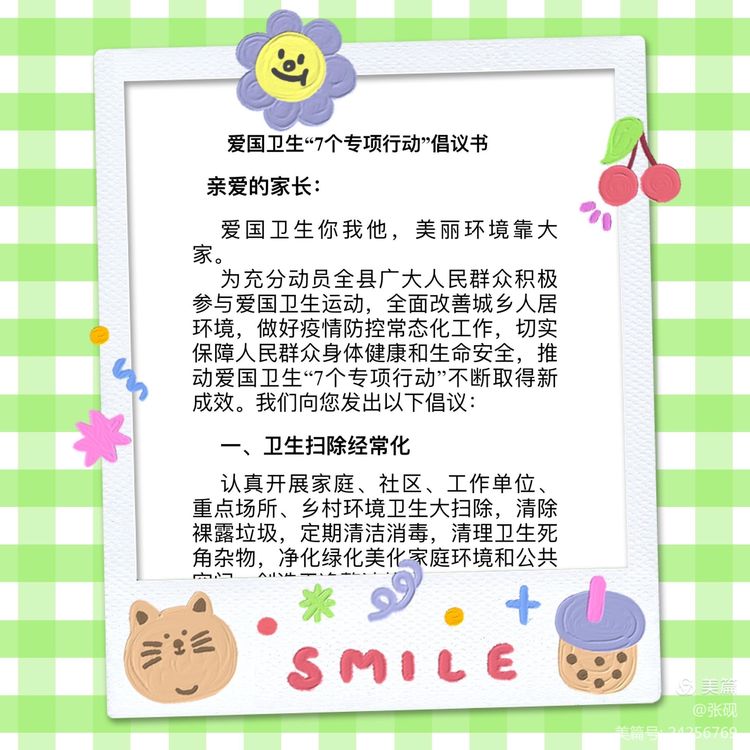 爱国卫生“7个专项行动”倡议书
亲爱的家长：
爱国卫生你我他，美丽环境靠大
家。
为充分动员全县广大人民群众积极
参与爱国卫生运动，全面改善城乡人居
环境，做好疫情防控常态化工作，切实
保障人民群众身体健康和生命安全，推
动爱国卫生“7个专项行动”不断取得新
成效。我们向您发出以下倡议：
一、卫生扫除经常化
认真开展家庭、社区、工作单位、
重点场所、乡村环境卫生大扫除，清除
裸露垃圾，定期清洁消毒，清理卫生死
角杂物，净化绿化美化家庭环境和公共
SMILE
美篇
@张砚
美篇号:24256769